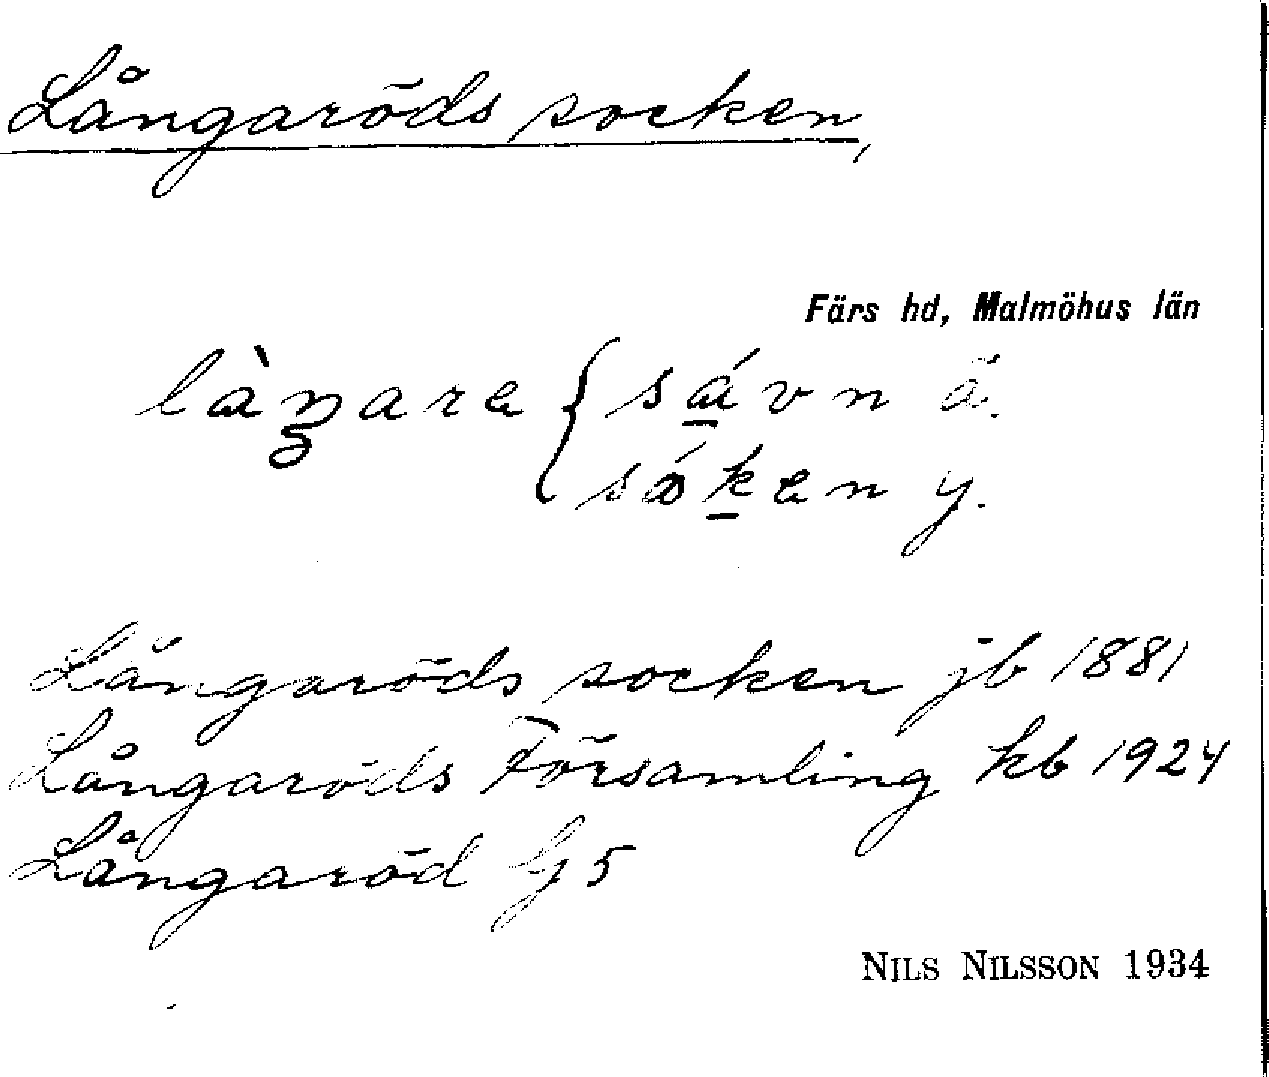 Långaröds socken,
Färs hd, Malmöhus län
làŋarɛ { sávn ä.
sákɛn y.
Långaröds socken jb 1881
Långaröds Församling kb 1924
Långaröd G 5
NILS NILSSON 1934